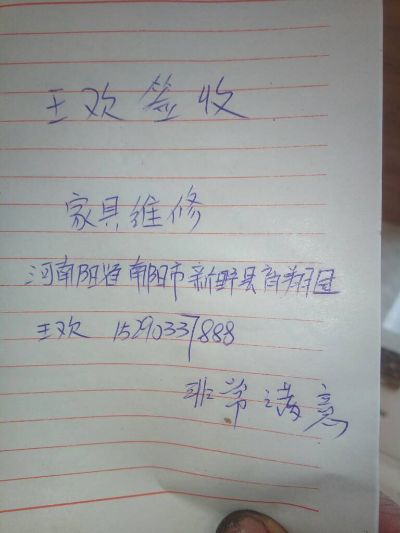 王欢签收
家具维修
河南阳省南阳市新野县育翔园
王欢 15290337888
非常满意